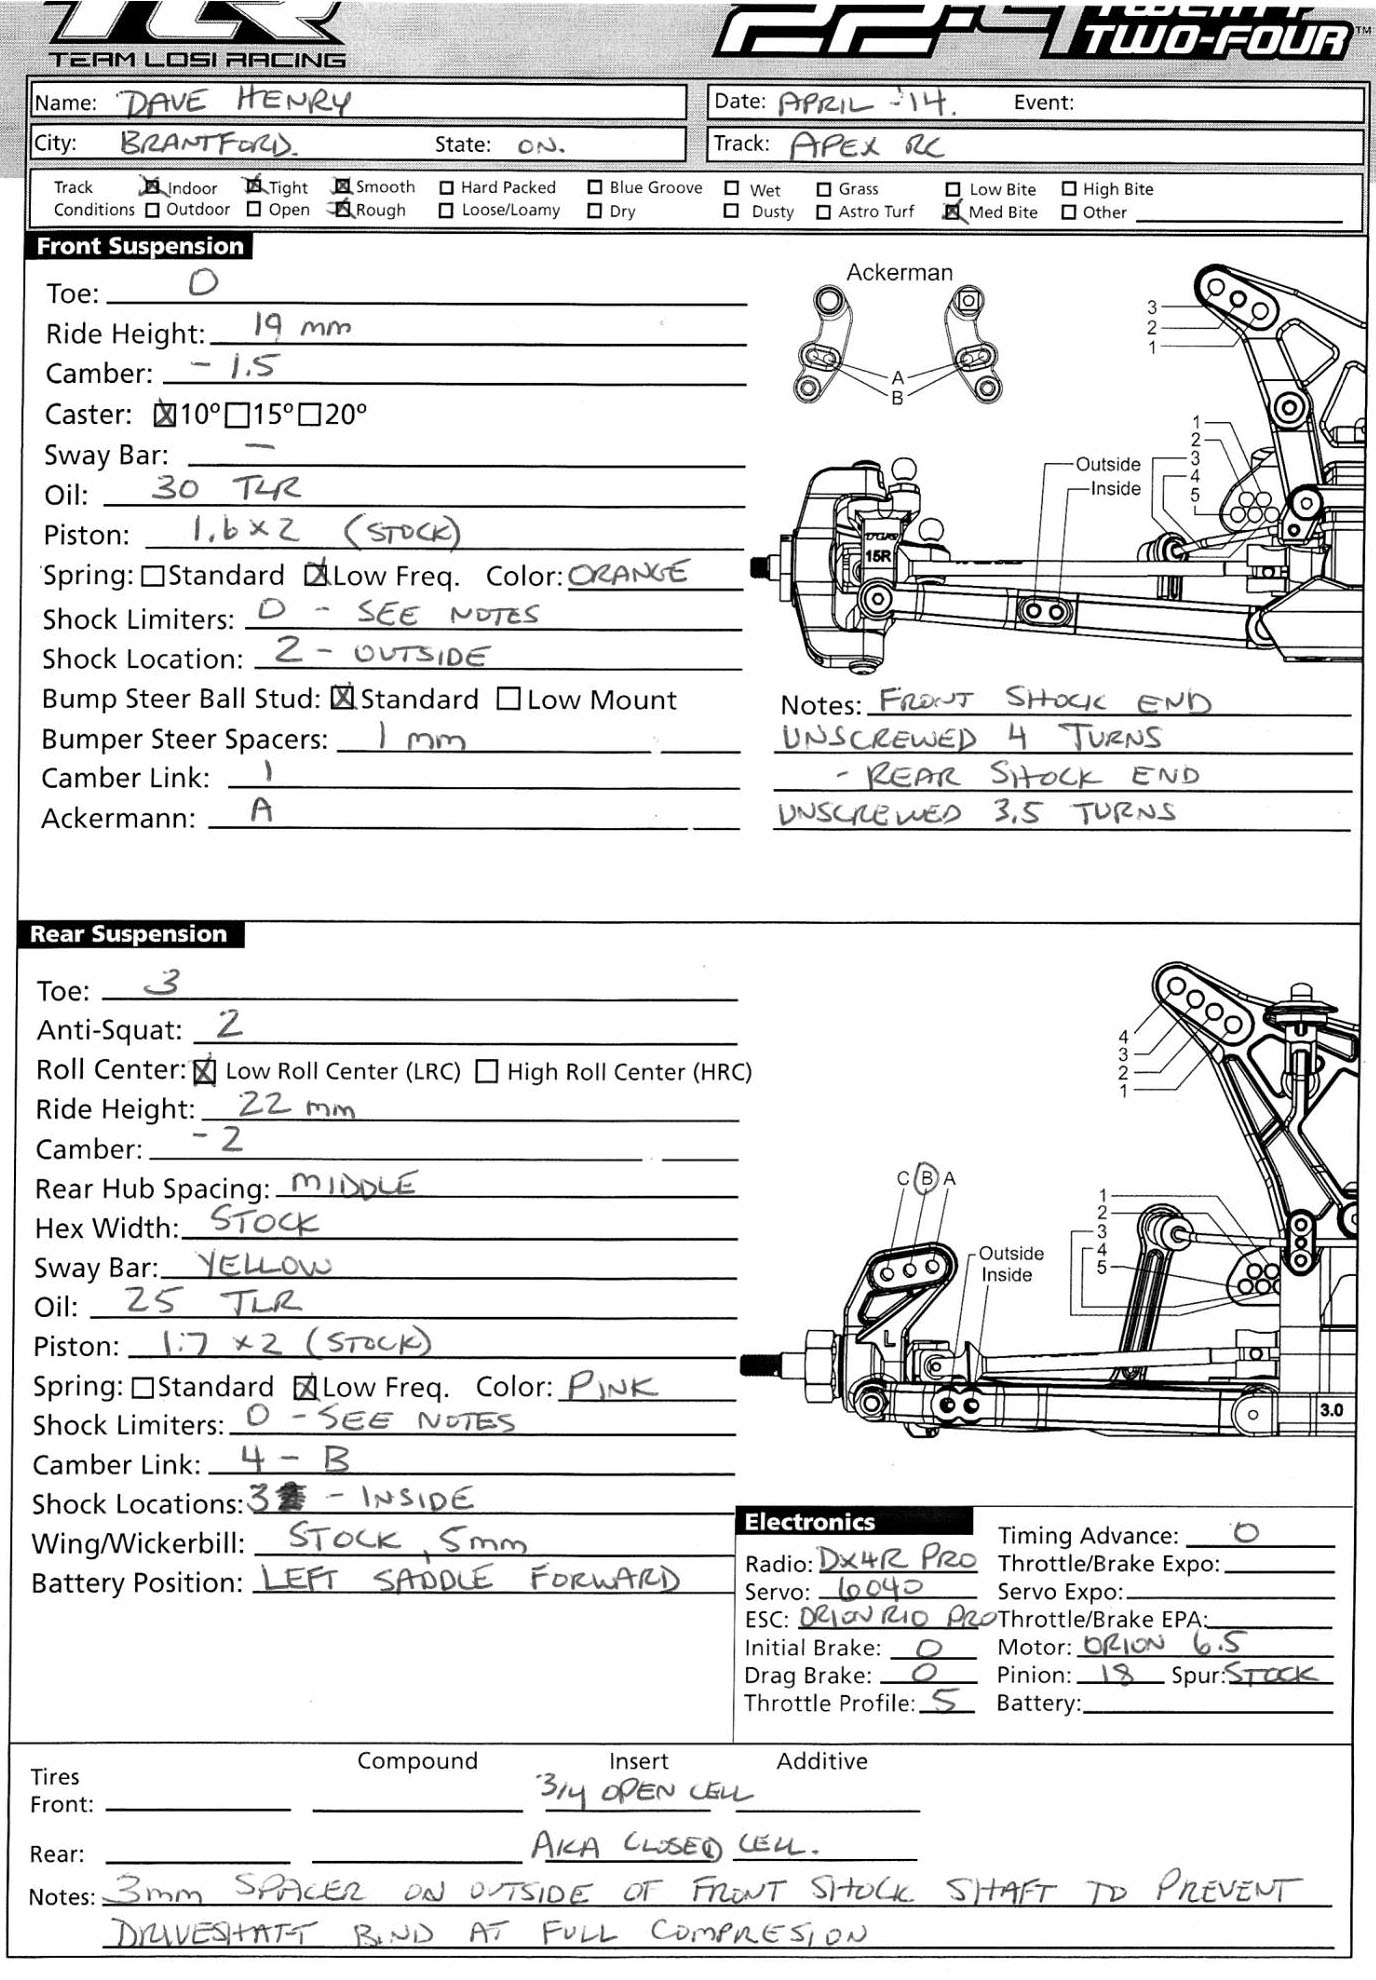 TLR
TEAM LOSI RACING
22-4 TWENTY
TWO-FOUR™
Name: DAVE HENRY
Date: APRIL -'14. Event:
City: BRANTFORD. State: ON.
Track: APEX RC
Track ☒ Indoor ☒ Tight ☒ Smooth ☐ Hard Packed ☐ Blue Groove ☐ Wet ☐ Grass ☐ Low Bite ☐ High Bite
Conditions ☐ Outdoor ☐ Open ☒ Rough ☐ Loose/Loamy ☐ Dry ☐ Dusty ☐ Astro Turf ☒ Med Bite ☐ Other
Front Suspension
Toe: 0
Ride Height: 19 mm
Camber: - 1.5
Caster: ☒ 10° ☐ 15° ☐ 20°
Sway Bar: —
Oil: 30 TLR
Piston: 1.6 x 2 (STOCK)
Spring: ☐ Standard ☒ Low Freq. Color: ORANGE
Shock Limiters: 0 - SEE NOTES
Shock Location: 2 - OUTSIDE
Bump Steer Ball Stud: ☒ Standard ☐ Low Mount
Bumper Steer Spacers: 1 mm
Camber Link: 1
Ackermann: A
Ackerman
A
B
3
2
1
1
2
3
4
5
Outside
Inside
TLR
15R
Notes: FRONT SHOCK END
UNSCREWED 4 TURNS
- REAR SHOCK END
UNSCREWED 3.5 TURNS
Rear Suspension
Toe: 3
Anti-Squat: 2
Roll Center: ☒ Low Roll Center (LRC) ☐ High Roll Center (HRC)
Ride Height: 22 mm
Camber: - 2
Rear Hub Spacing: MIDDLE
Hex Width: STOCK
Sway Bar: YELLOW
Oil: 25 TLR
Piston: 1.7 x 2 (STOCK)
Spring: ☐ Standard ☒ Low Freq. Color: PINK
Shock Limiters: 0 - SEE NOTES
Camber Link: 4 - B
Shock Locations: 3 - INSIDE
Wing/Wickerbill: STOCK , 5mm
Battery Position: LEFT SADDLE FORWARD
4
3
2
1
C B A
1
2
3
4
5
Outside
Inside
L
3.0
Electronics
Timing Advance: 0
Radio: DX4R PRO Throttle/Brake Expo:
Servo: 6040 Servo Expo:
ESC: ORION R10 PRO Throttle/Brake EPA:
Initial Brake: 0 Motor: ORION 6.5
Drag Brake: 0 Pinion: 18 Spur: STOCK
Throttle Profile: 5 Battery:
Compound Insert Additive
Tires
Front: 3/4 OPEN CELL
Rear: AKA CLOSED CELL.
Notes: 3mm SPACER ON OUTSIDE OF FRONT SHOCK SHAFT TO PREVENT
DRIVESHAFT BIND AT FULL COMPRESION